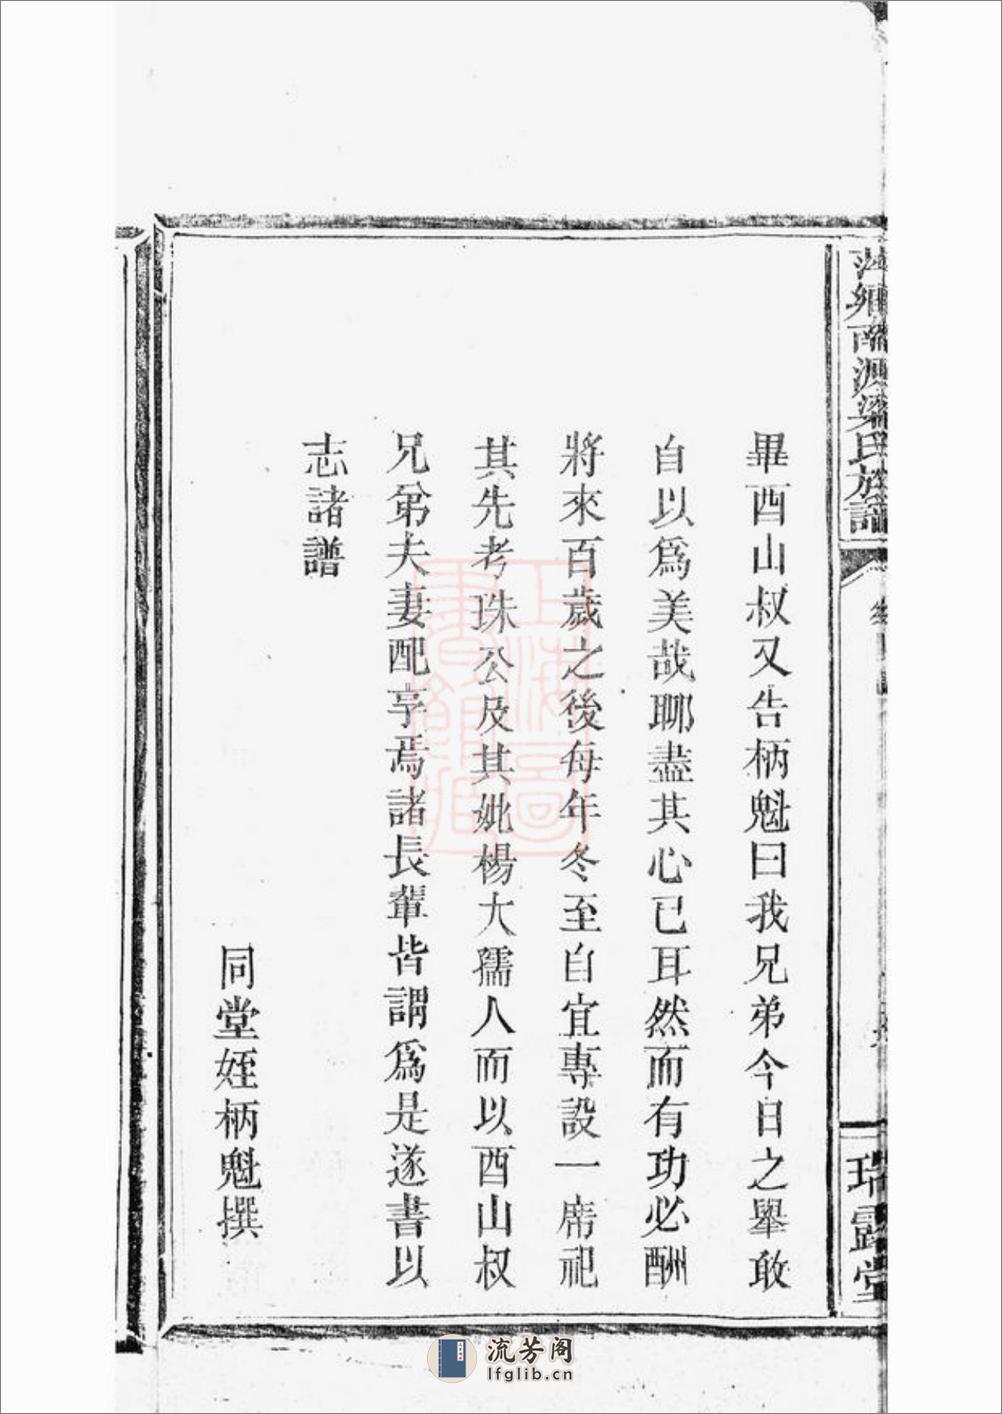 萍鄉南源梁氏族譜
瑞露堂
畢酉山叔又告柄魁曰我兄弟今日之舉敢
自以爲美哉聊盡其心已耳然而有功必酬
將來百歲之後每年冬至自宜專設一席祀
其先考珠公及其妣楊大孺人而以酉山叔
兄弟夫妻配享焉諸長輩皆謂爲是遂書以
志諸譜
同堂姪柄魁撰
上海圖書館藏
流芳阁
lfglib.cn